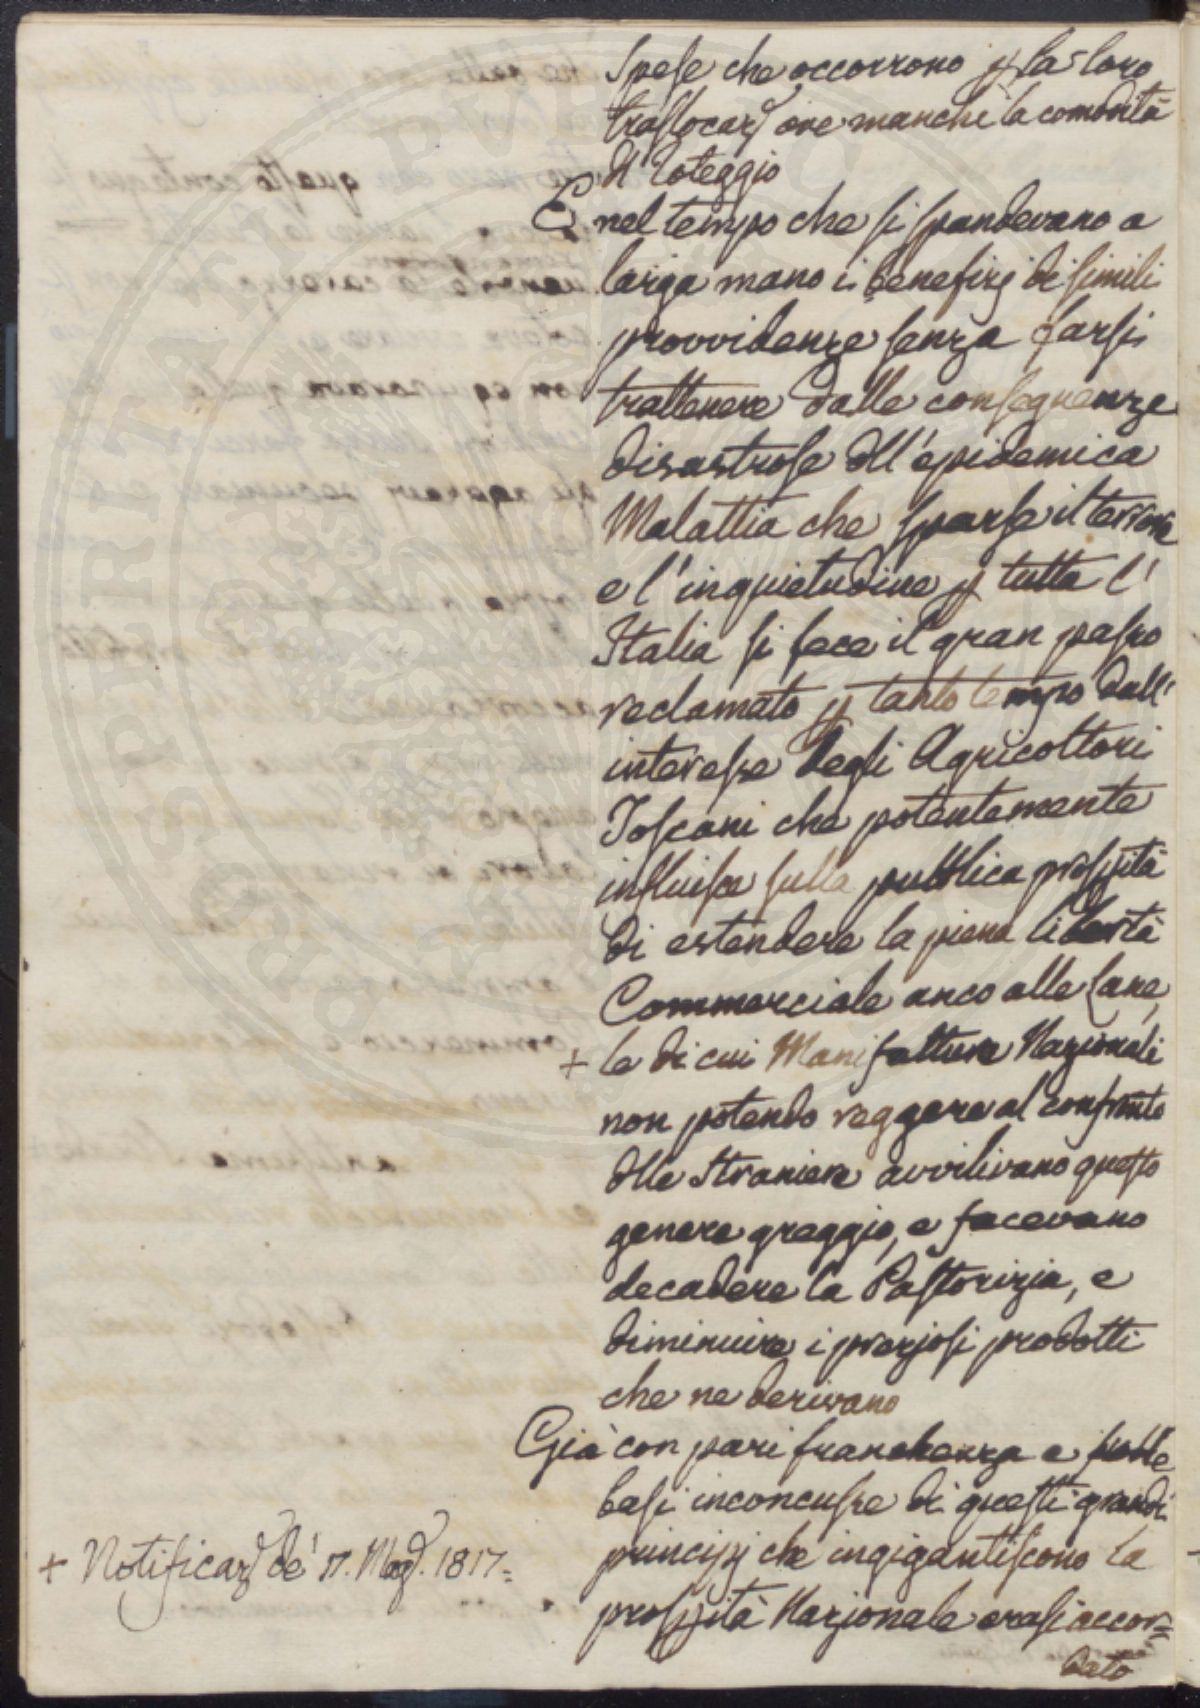 Spese che occorrono p la loro
traslocazᵉ ove manchi la comodità
dl Noteggio
E nel tempo che si spandevano a
larga mano i benefizj di simili
provvidenze senza farsi
trattenere dalle conseguenze
disastrose dll'epidemica
Malattia che sparse il terrore
e l'inquietudine p tutta l'
Italia si fece il gran passo
reclamato p tanto tempo dall'
interesse degli Agricoltori
Toscani che potentemente
influisce sulla pubblica prospità
di estendere la piena libertà
Commerciale anco alle Lane,
+ le di cui Manifatture Nazionali
non potendo reggere al confronto
dlle Straniere avvilivano questo
genere greggio, e facevano
decadere la Pastorizia, e
diminuire i preziosi prodotti
che ne derivano
Già con pari franchezza e sulle
basi inconcusse di questi grandi
principj che ingigantiscono la
prospità Nazionale erasi accor=
dato
+ Notificazᵉ de' 17. Magᵒ. 1817=